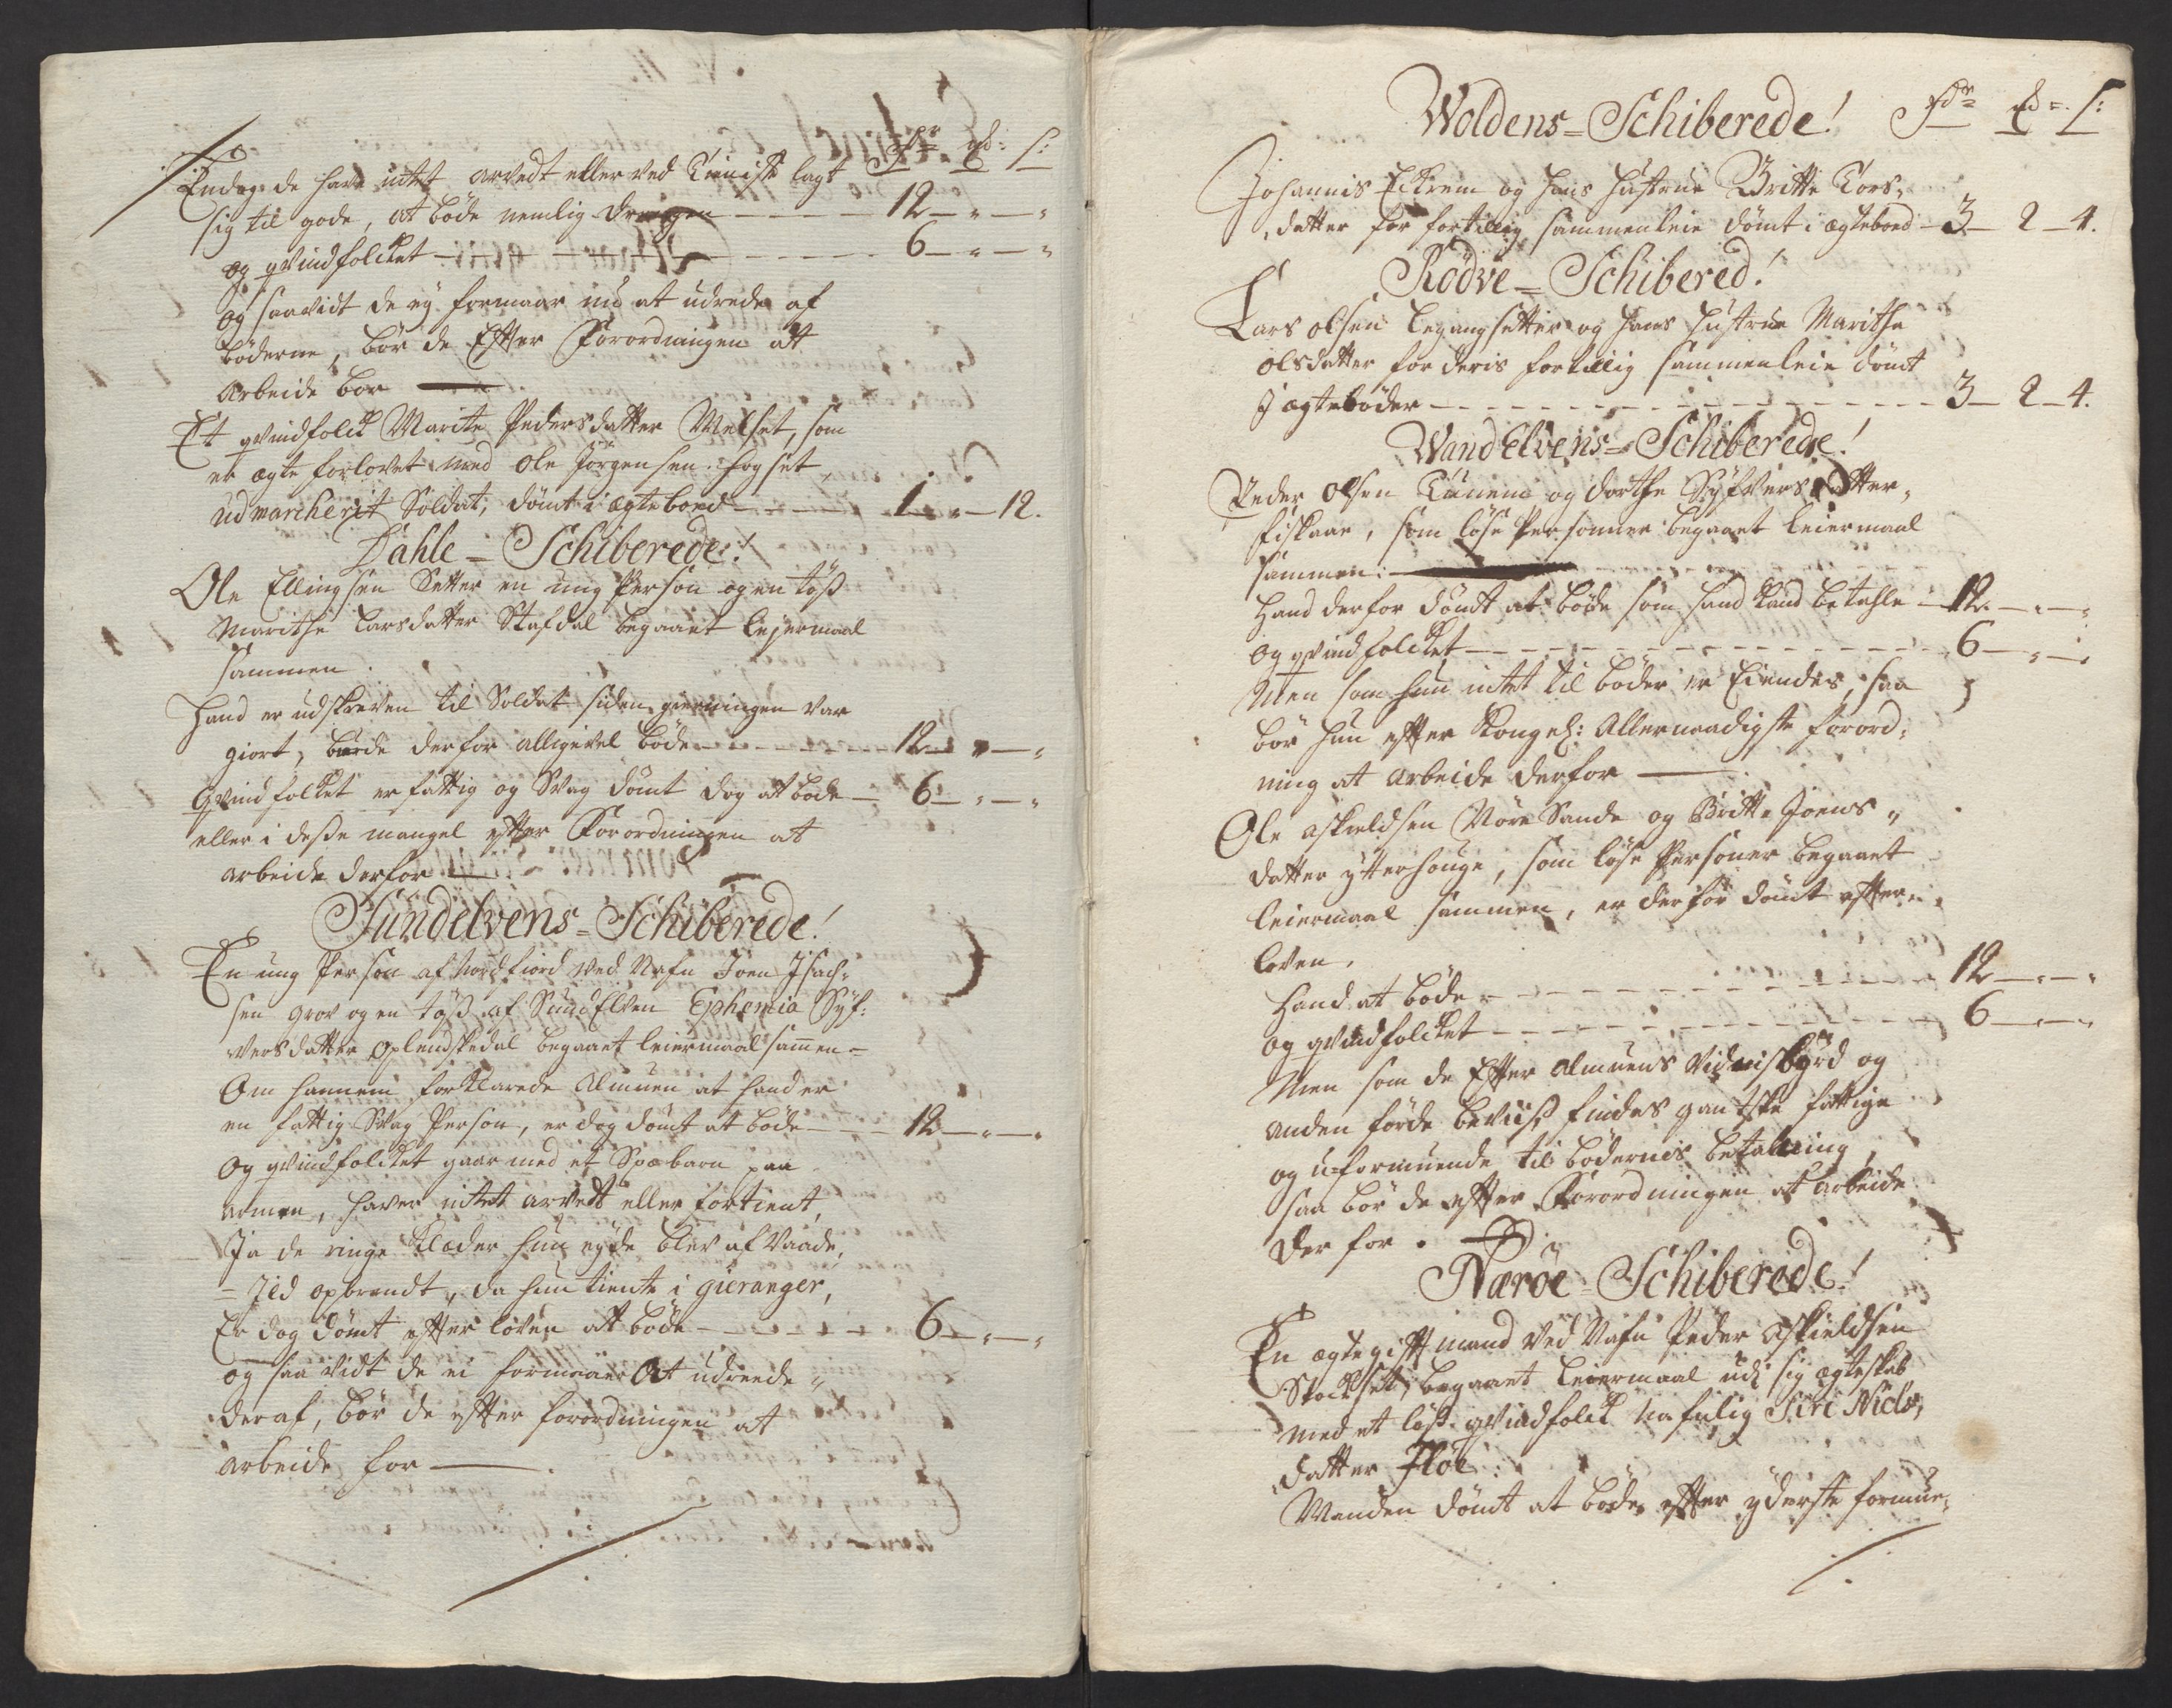 Rdr mk: s:
Endog de have intet arvedt eller ved Tieniste lagt
sig til gode, at böde nemlig drengen 12 - " - "
og qvindfolcket 6 - " - "
og saavidt de ey formaar nu at udrede af
böderne, bör de Efter Forordningen at
Arbeide bor
Et qvindfolck Marite Pedersdatter Melset, som
er ægte forlovet med Ole Jörgensen Hogset
udmarcherit Soldat, dömt i ægtebond 1 - " - 12.
Dahle = Schiberede!
Ole Ellingsen Setter en ung Person og en töß
Marithe Larsdatter Stafdal begaaet lejermaal
sammen.
Hand er udskreven til Soldat siden gierningen var
giort, burde derfor alligevel böde 12 - " - "
Qvindfolket er fattig og Svag dömt dog at böde 6 - " - "
eller i deße mangel efter Forordningen at
arbeide derfor
Sundelvens = Schiberede!
En ung Person af Nordfiord ved Nafn Joen Isach=
sen grov og en töß af SundElven Ephemia Syf:
versdatter Oplendskedal begaaet leiermaal sammen =
Om hannem forklarede Almuen at hand er
en fattig Svag Person, er dog dömt at böde 12 - " - "
Og qvindfolcket gaar med et Spæbarn paa
armen, haver intet arvedt eller fortient,
Ja de ringe Klæder hun eyde blev af Vaade,
= Ild opbrendt, da hun tiente i gieranger,
Er dog dömt efter loven at böde 6 - " - "
og saa vidt de ei formaaer At udreede "
deraf, bör de efter forordningen at
arbeide for
Woldens = Schiberede! Rdr mk = s:
Johannis Eckrem og hans hustrue Britte Lars=
datter for fortillig sammenleie dömt i ægtebond 3 - 2 - 4.
Rödve = Schibered!
Lars olsen Legangsetter og hans hustrue Marithe
olsdatter for deris fortillig sammenleie dömt
I ægteböder 3 - 2 - 4.
WandElvens = Schiberede!
Peder olsen Tunem og dorthe Syfversdatter
fiskaae, som löse Personner begaaet leiermaal
sammen:
Hand derfor dömdt at böde som hand kand betahle 12 - " - "
Og qvindfolcket 6 - " - "
Men som hun intet til böder er Eiendes, saa
bör hun efter Kongel: Allernaadigste forord=
ning at arbeide derfor
Ole askieldsen Nöre Sande og Britte Joens "
datter ytterhouge, som löse Personer begaaet
leiermaal sammen, er derfor dömt efter
loven.
Hand at böde 12 - " - "
og qvindfolcket 6 - " - "
Men som de Efter Almuens Vidnisbyrd og
anden förde beviis, findes gantske fattige
og uformuende til bödernis betalning,
saa bör de efter Forordningen at arbeide
der for.
Naröe = Schiberede!
En ægtegift mand ved Nafn Peder Askieldsen
Stockset, begaaet leiermaal udi sig ægteskab
med et löß qvindfolck nafnlig Siri Niels=
datter Flöe:
Manden dömt at böde efter yderste formue,